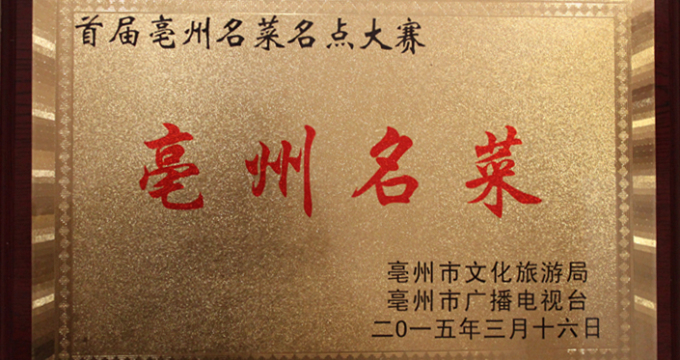 首届亳州名菜名点大赛
亳州名菜
亳州市文化旅游局
亳州市广播电视台
二0一五年三月十六日